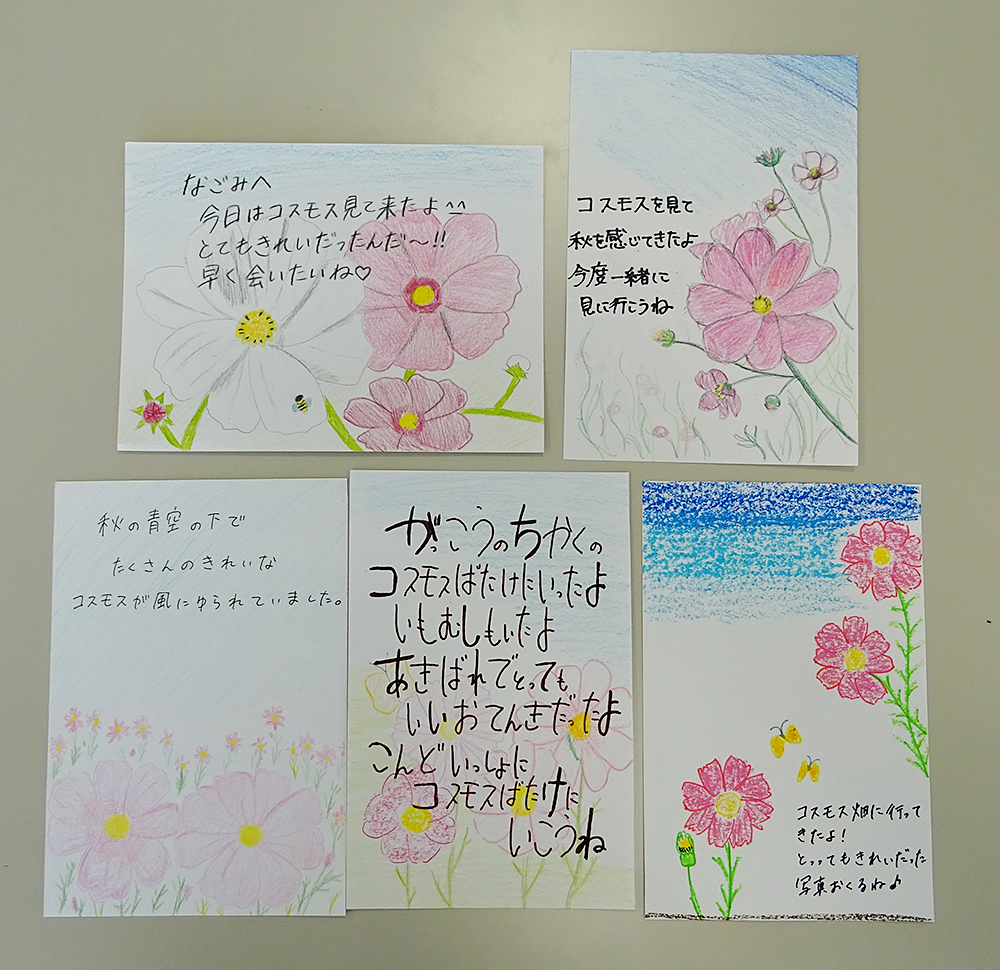 なごみへ
今日はコスモス見て来たよ^^
とてもきれいだったんだ〜!!
早く会いたいね♡
コスモスを見て
秋を感じてきたよ
今度一緒に
見に行こうね
秋の青空の下で
たくさんのきれいな
コスモスが風にゆられていました。
がっこうのちかくの
コスモスばたけにいったよ
いもむしもいたよ
あきばれでとっても
いいおてんきだったよ
こんどいっしょに
コスモスばたけに
いこうね
コスモス畑に行って
きたよ!
とってもきれいだった
写真おくるね♪